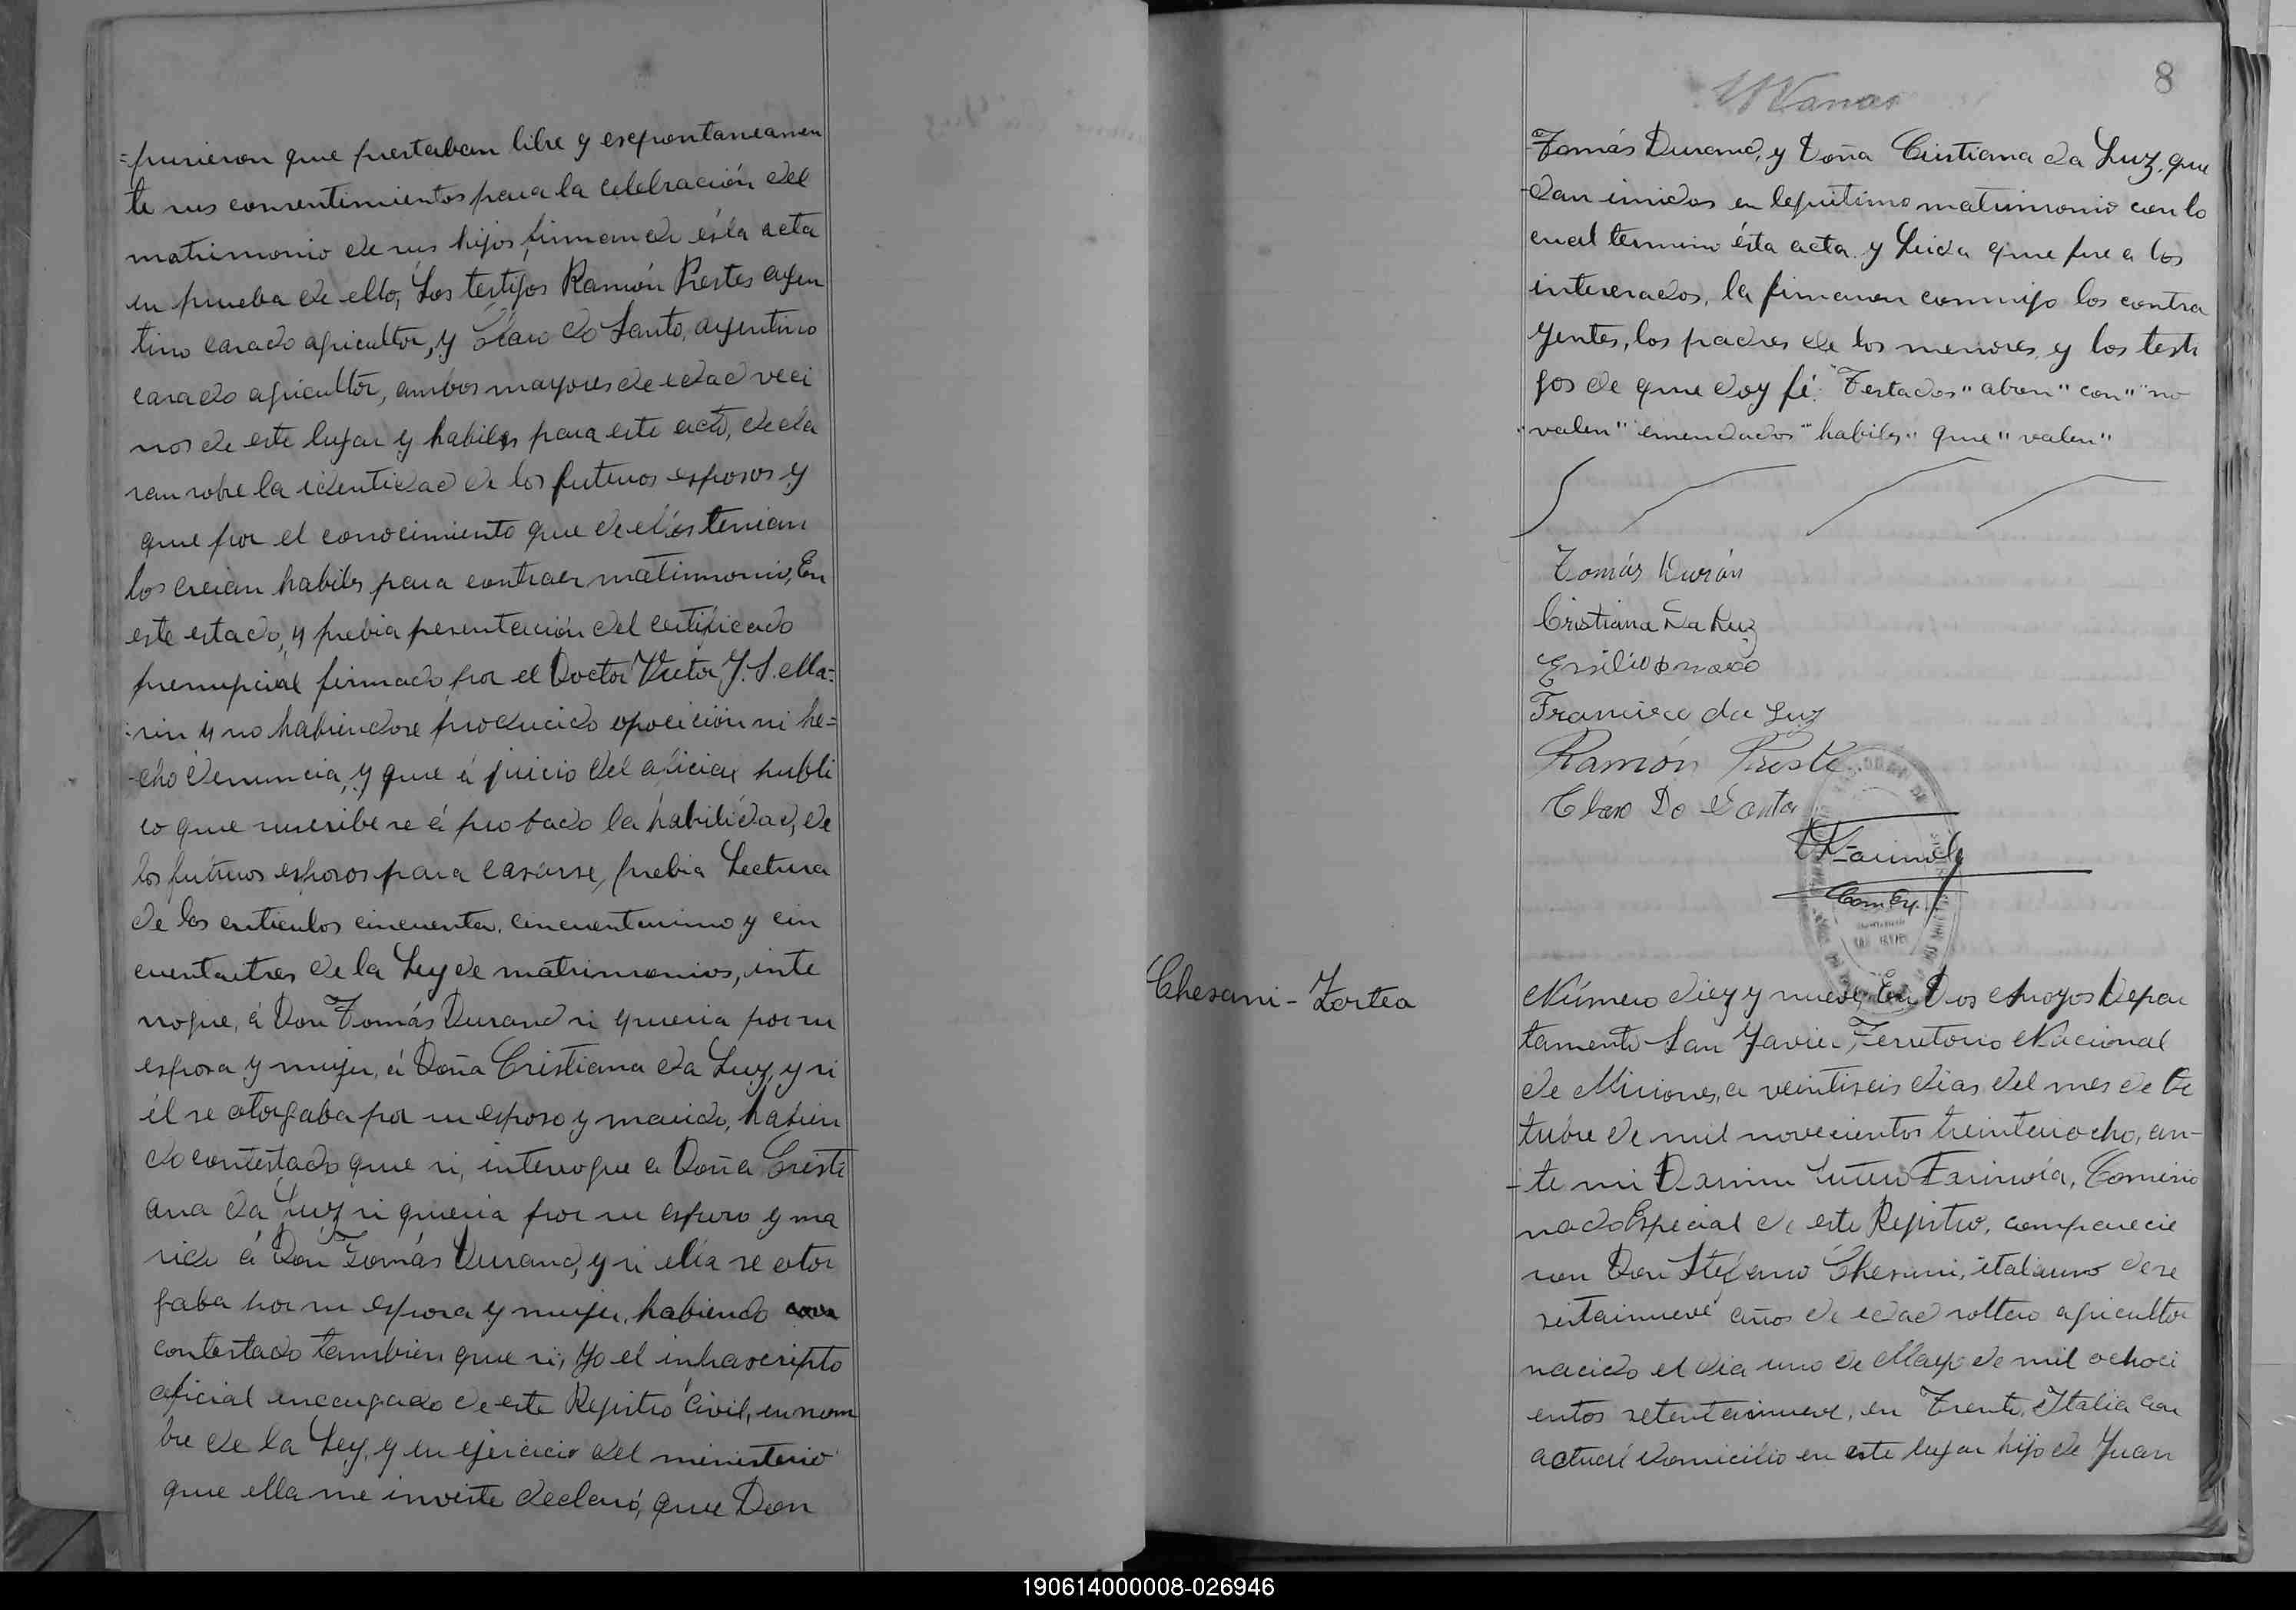 =pusieron que prestaban libre y esepontaneamen
te sus consentimientos para la celebración del
matrimonio de sus hijos, firmando ésta acta
en prueba de ello, Los testigos Ramón Prestes argen
tino casado agricultor, y Claro do Santo, argentino
casado agricultor, ambos mayores de edad veci
nos de este lugar y habiles para este acto, decla
ran sobre la identidad de los futuros esposos y
que por el conocimiento que de ellos tenian
los creian habiles para contraer matrimonio, En
este estado, y prebia presentación del certificado
prenupcial firmado por el Doctor Victor J. S. Ma=
:rin y no habiendose producido oposición ni he=
-cho denuncia, y que á juicio del oficial publi
co que suscribe se á probado la habilidad, de
los futuros esposos para casarse, prebia Lectura
de los articulos cincuenta, cincuentaiuno y cin
cuentaitres de la Ley de matrimonios, inte
rrogue, á Don Tomás Durand si queria por su
esposa y mujer, á Doña Cristiana da Luz, y si
él se otorgaba por su esposo y marido, habien
do contestado que si, interrogue a Doña Cristi
ana da Luz si queria por su esposo y ma
rido á Don Tomás Durand, y si ella se otor
gaba por su esposa y mujer, habiendo
contestado tambien que si, Yo el infrascripto
oficial encargado de este Registro Civil, en nom
bre de la Ley, y en ejercicio del ministerio
que ella me inviste declaró, que Don
8
Tomás Durand, y Doña Cristiana da Luz, que
-dan unidos en legitimo matrimonio con lo
cual termino ésta acta y Leida que fue a los
interesados, la firmaron conmigo los contra
yentes, los padres de los menores y los testi
gos de que doy fé. "Testados" aban" con" "no
"valen" emendados "habiles" que" valen"
Tomás Durán
Cristiana Da Luz
Francisco da Luz
Ramón Preste
Claro Do Santo
Chesani - Zortea
Número diez y nueve, En Dos Arroyos Depar
tamento San Javier, Territorio Nacional
de Misiones, a veintiseis dias del mes de Oc
tubre de mil novecientos treintaiocho, an-
-te mi Farinola, Comisio
nado Especial de este Registro, comparecie
ron Don Stefano Chesani, italiano de se
sentainueve años de edad soltero agricultor
nacido el dia uno de Mayo de mil ochoci
entos setentainueve, en Trento, Italia con
actual domicilio en este lugar hijo de Juan
190614000008-026946